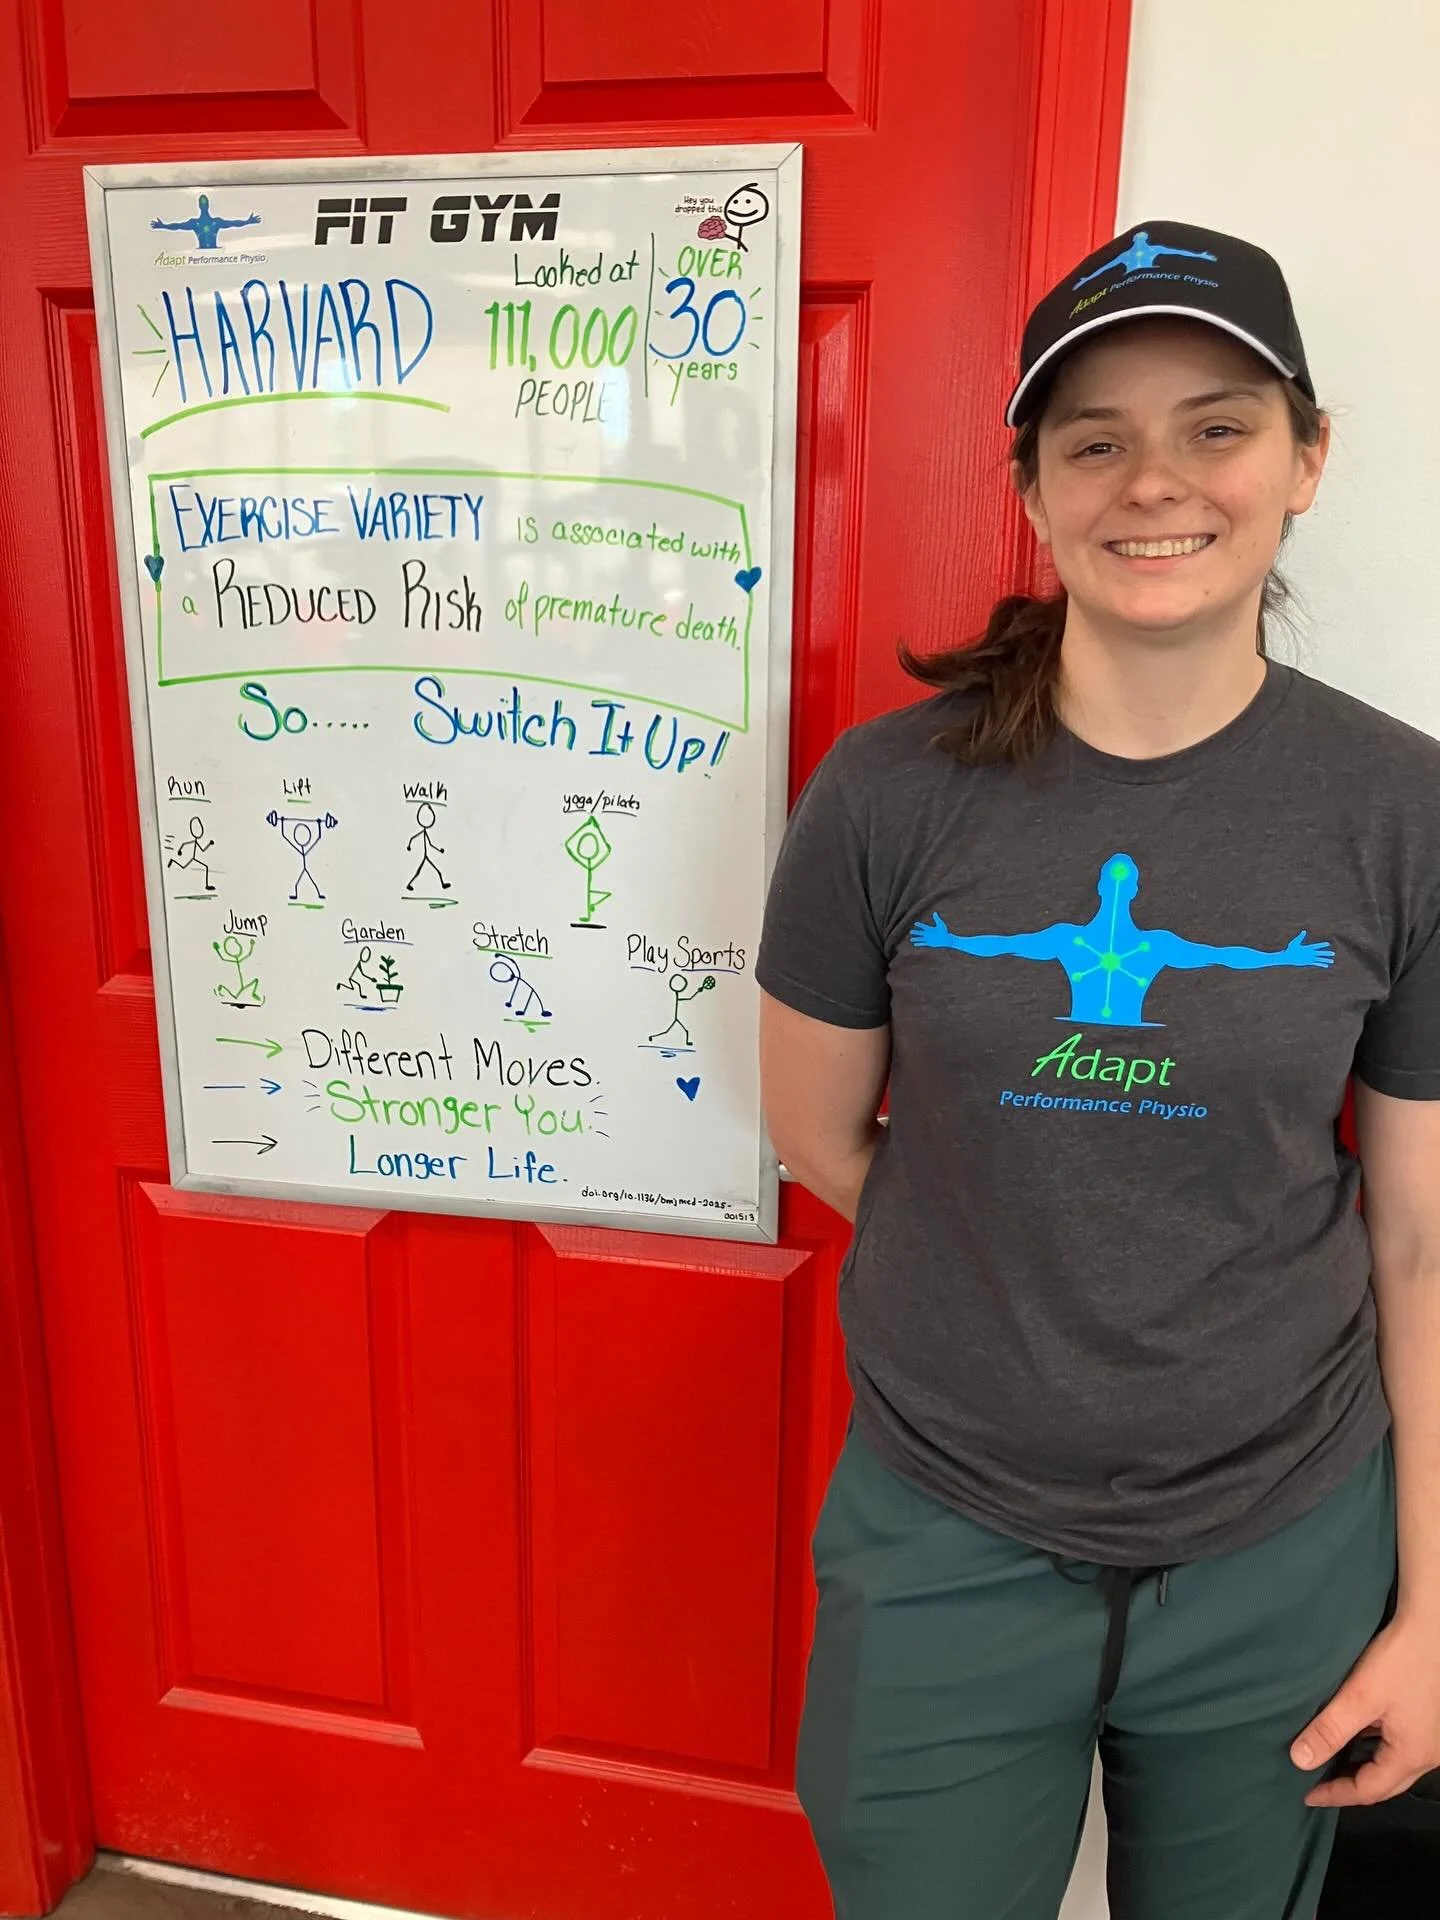 FIT GYM
Hey you
dropped this
Adapt Performance Physio
HARVARD
Looked at
111,000
PEOPLE
OVER
30
years
EXERCISE VARIETY is associated with
a REDUCED RISK of premature death.
So..... Switch It Up!
Run
Lift
Walk
yoga/pilates
Jump
Garden
Stretch
Play Sports
Different Moves.
Stronger You.
Longer Life.
doi.org/10.1136/bmjmed-2025-
001513
Adapt Performance Physio
Adapt
Performance Physio